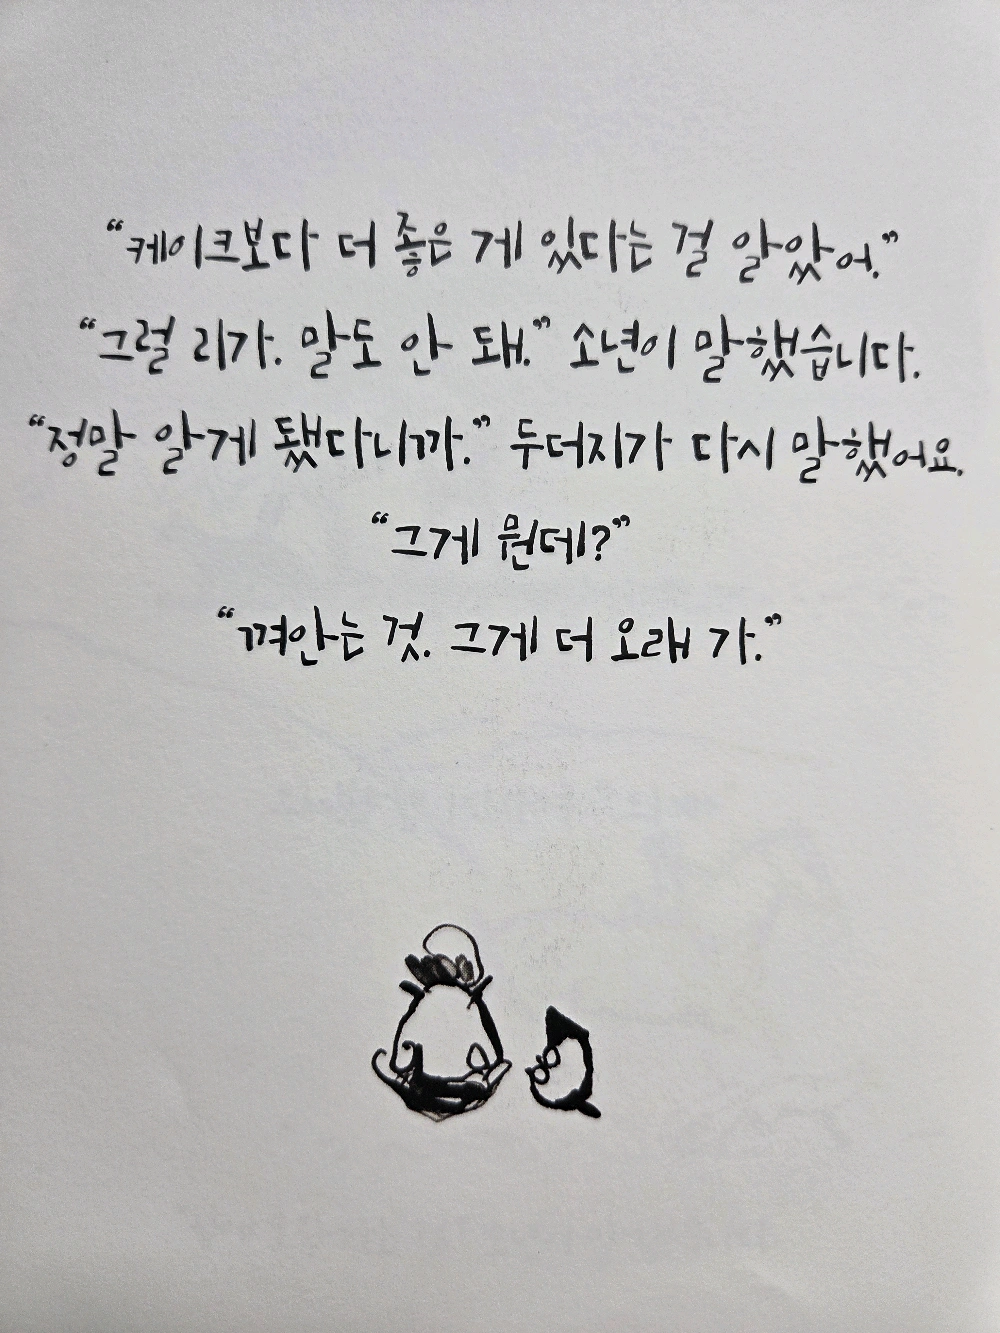 “케이크보다 더 좋은 게 있다는 걸 알았어.”
“그럴 리가. 말도 안 돼.” 소년이 말했습니다.
“정말 알게 됐다니까.” 두더지가 다시 말했어요.
“그게 뭔데?”
“껴안는 것. 그게 더 오래 가.”